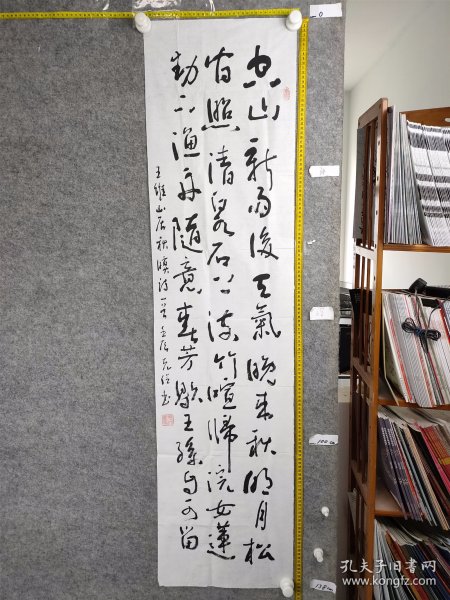 空山新雨後天氣晚来秋明月松
间照清泉石上流竹喧歸浣女蓮
動下漁舟隨意春芳歇王孫自可留
王維山居秋暝詩一首
0
100cm
138cm
孔夫子旧书网
www.kongfz.com